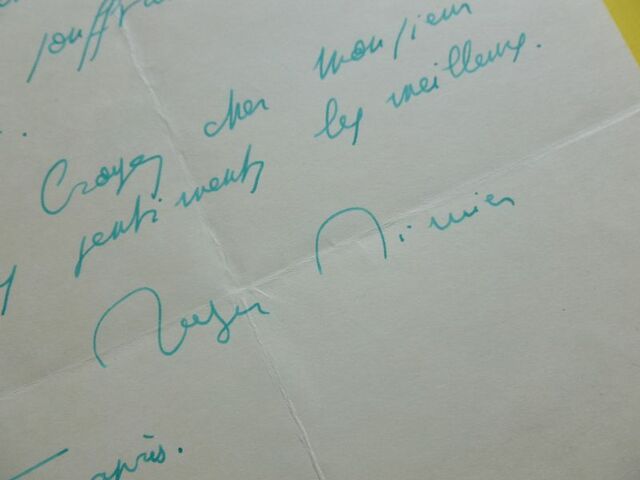 Croyez cher monsieur
sentiments les meilleurs.
Roger Nimier
après.